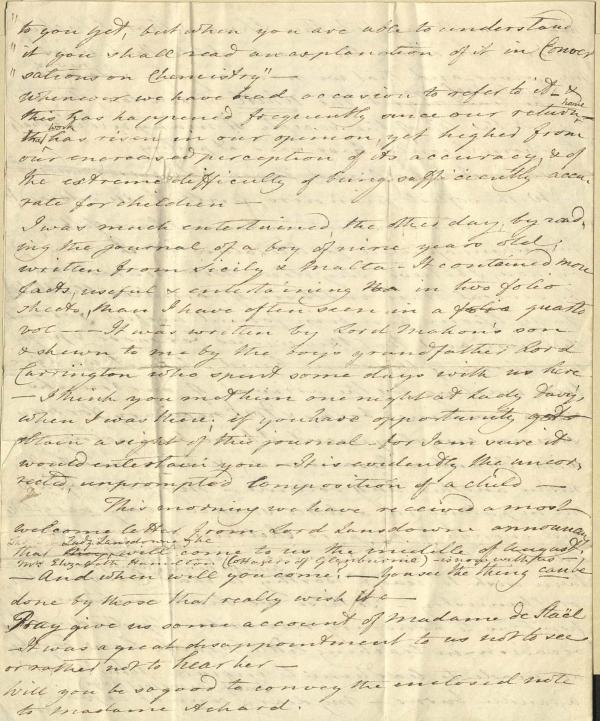 "to you yet, but when you are able to understand
"it you shall read an explanation of it in Conver
"sations on Chemistry" —
Whenever we have had occasion to refer to it — &
this has happened frequently since our return home
that work has risen in our opinion, yet higher from
our encreased perception of its accuracy, & of
the extreme difficulty of being sufficiently accu
rate for children —
I was much entertained, the other day, by read-
ing the journal of a boy of nine years old,
written from Sicily & Malta — It contained more
facts, useful & entertaining in two folio
sheets, than I have often seen in a folio quarto
vol — It was written by Lord Mahon's son
& shewn to me by the boys grandfather Lord
Carrington who spent some days with us here
— I think you met him one night at Lady Davy's
when I was there; if you have opportunity
obtain a sight of this journal — for I am sure it
would entertain you — It is evidently the uncor
rected, unprompted composition of a child —
This morning we have received a most
welcome letter from Lord Lansdowne announcing
Lady Lansdowne & he
that will come to us the middle of August.
Mrs Elizabeth Hamilton (Cottagers of Glenburnie) is now with us
— And when will you come. — You see the thing can be
done by those that really wish it —
Pray give us some account of Madame de Staël
— It was a great disappointment to us not to see
or rather not to hear her —
Will you be so good to convey the enclosed note
to Madame Achard.